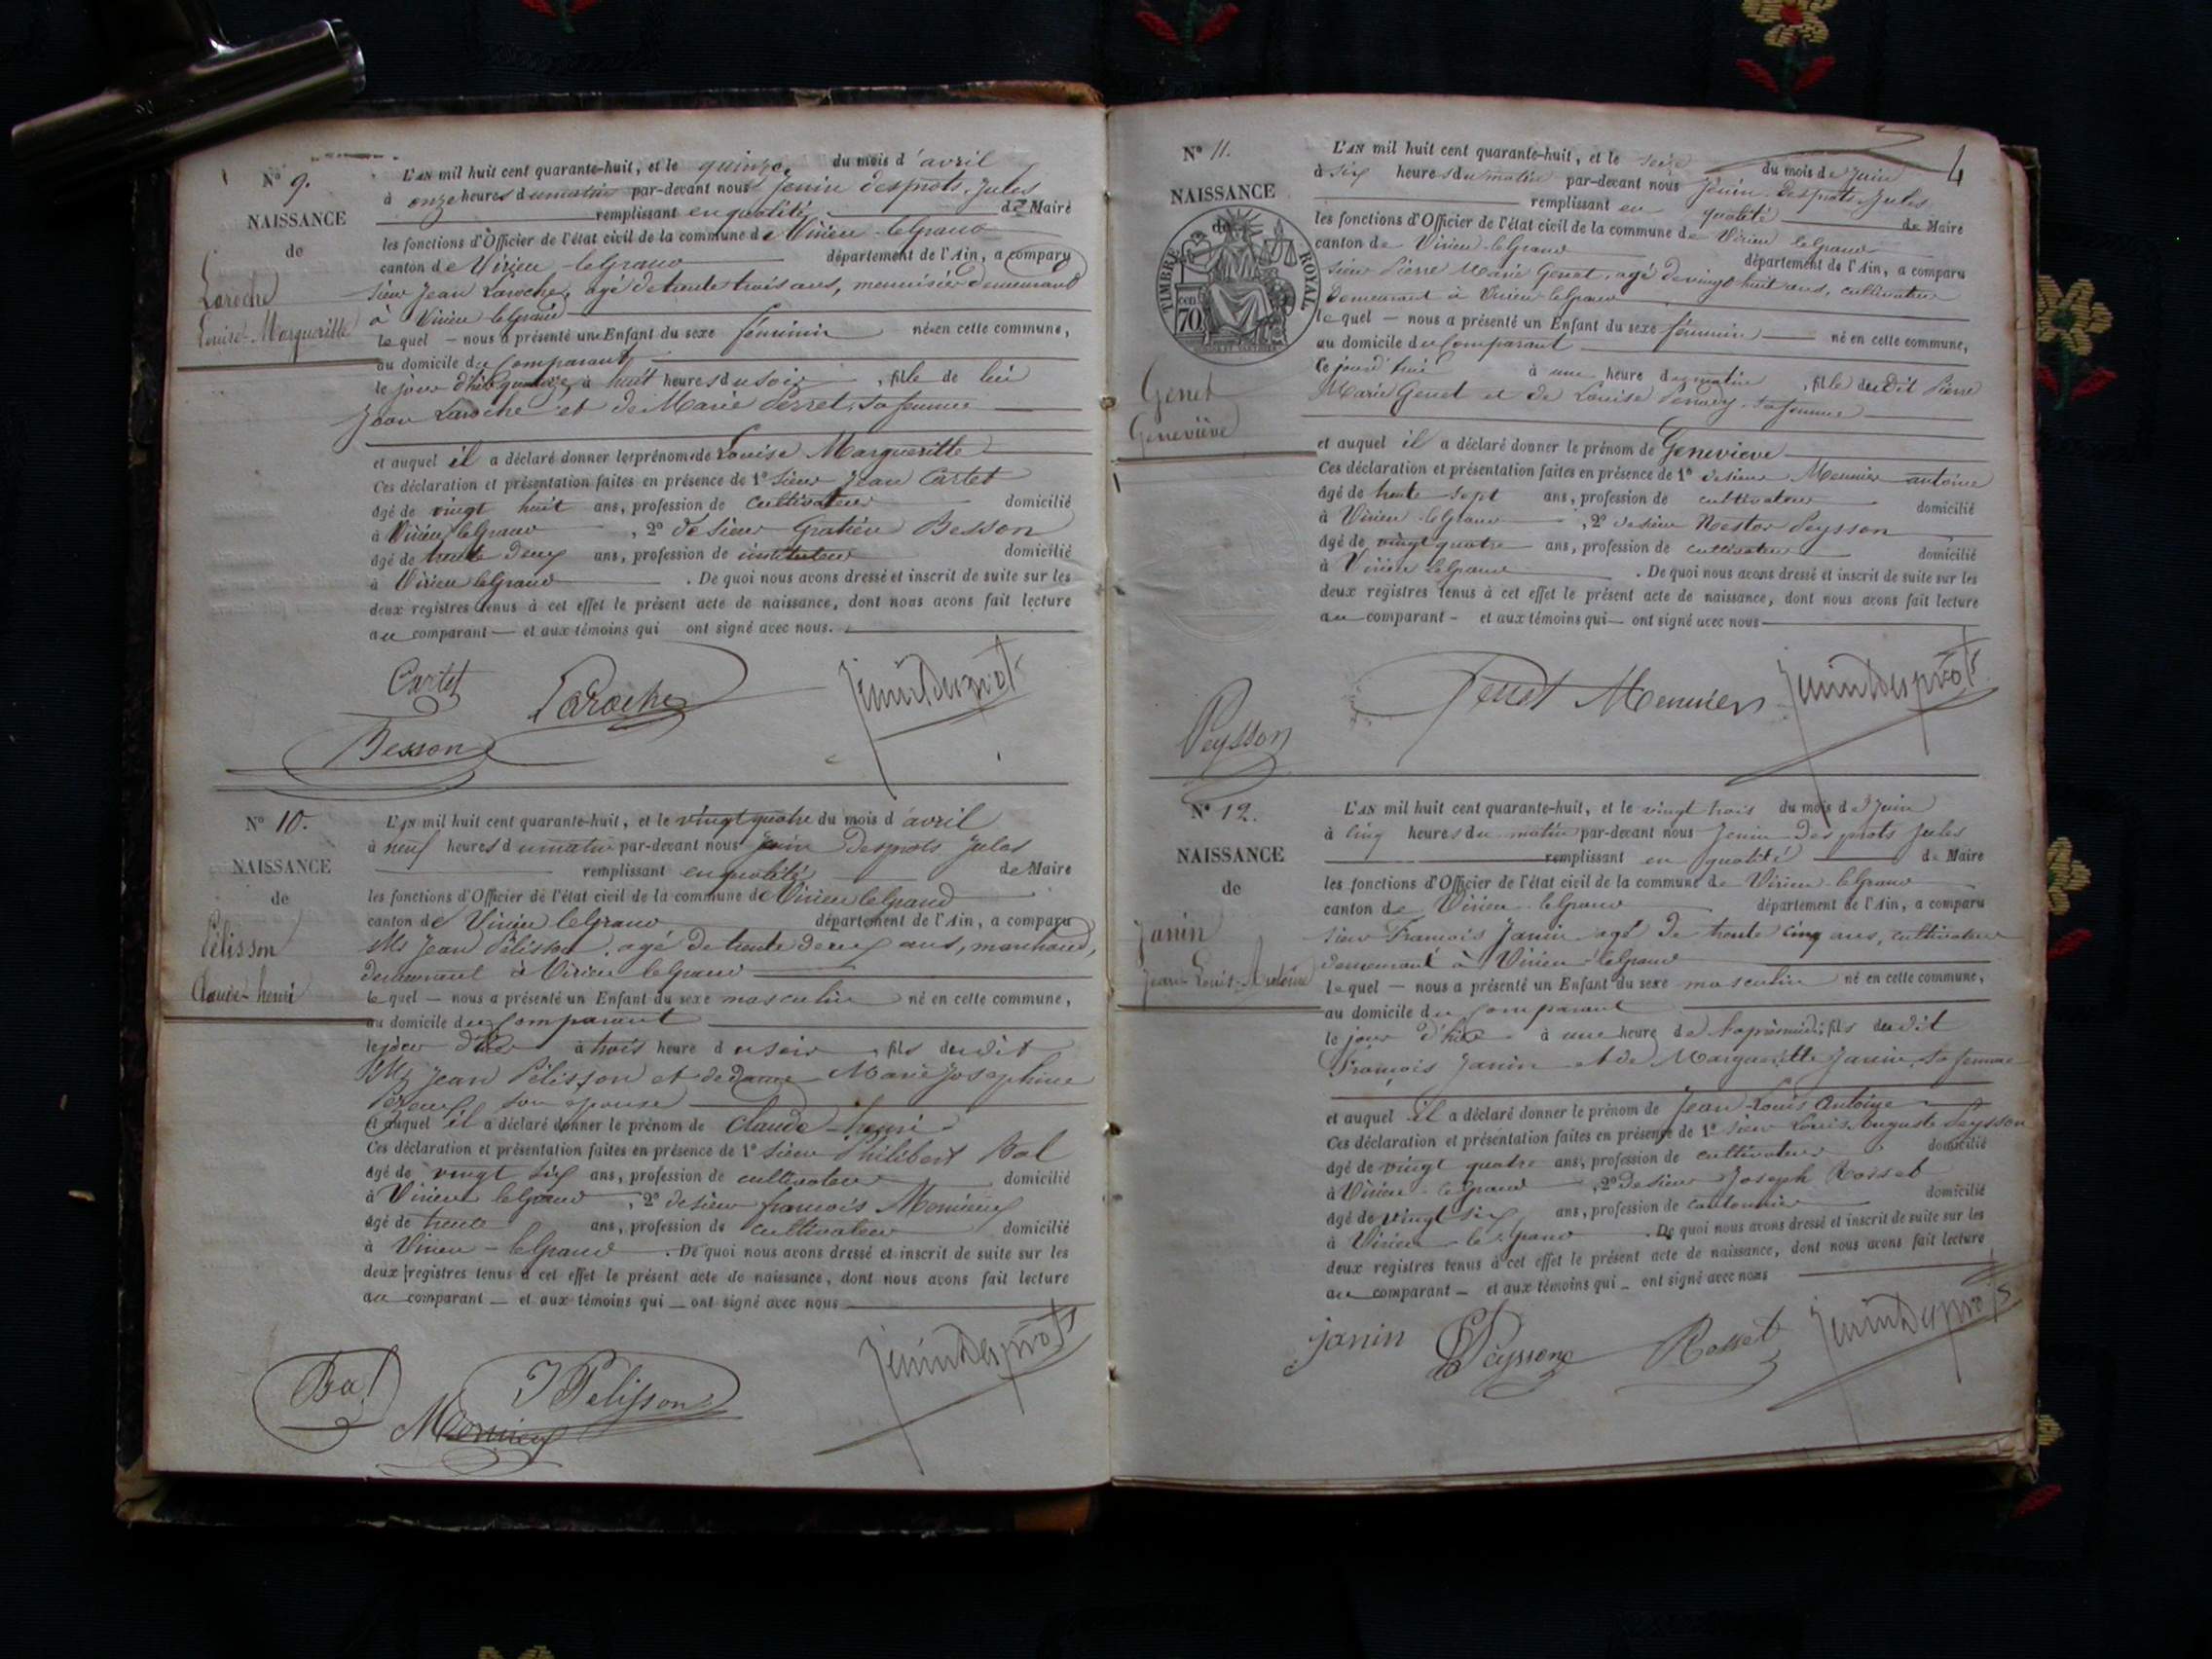 N° 9.
NAISSANCE
de
Laroche
Louise-Margueritte
L'AN mil huit cent quarante-huit, et le quinze du mois d'avril
à onze heures du matin par-devant nous Jenin Desprots, Jules
remplissant en qualité de Maire
les fonctions d'Officier de l'état civil de la commune de Virieu-le-Grand
canton de Virieu-le-Grand département de l'Ain, a comparu
sieur Jean Laroche, agé de trente trois ans, menuisier demeurant
à Virieu le Grand
lequel — nous a présenté un Enfant du sexe féminin né en cette commune,
au domicile du Comparant
le jour d'hier à huit heures du soir, fille de lui
Jean Laroche et de Marie Perret, sa femme
et auquel il a déclaré donner les prénoms de Louise Margueritte
Ces déclaration et présentation faites en présence de 1° sieur Jean Cartet
âgé de vingt huit ans, profession de cultivateur domicilié
à Virieu le Grand, 2° de sieur Gratien Besson
âgé de trente deux ans, profession de instituteur domicilié
à Virieu le Grand. De quoi nous avons dressé et inscrit de suite sur les
deux registres tenus à cet effet le présent acte de naissance, dont nous avons fait lecture
au comparant — et aux témoins qui ont signé avec nous.
Cartet Laroche Jenin Desprots
Besson
N° 10.
NAISSANCE
de
Pélisson
Claude-henri
L'AN mil huit cent quarante-huit, et le vingt quatre du mois d'avril
à neuf heures du matin par-devant nous Jenin Desprots Jules
remplissant en qualité de Maire
les fonctions d'Officier de l'état civil de la commune de Virieu le Grand
canton de Virieu le Grand département de l'Ain, a comparu
Mr Jean Pélisson, agé de trente deux ans, marchand,
demeurant à Virieu le Grand
lequel — nous a présenté un Enfant du sexe masculin né en cette commune,
au domicile du Comparant
le jour d'hier à trois heure du soir, fils dudit
Mr Jean Pélisson et de dame Marie Josephine
son épouse
et auquel il a déclaré donner le prénom de Claude-henri
Ces déclaration et présentation faites en présence de 1° sieur Philibert Bal
âgé de vingt six ans, profession de cultivateur domicilié
à Virieu le Grand, 2° de sieur françois Monnieux
âgé de trente ans, profession de cultivateur domicilié
à Virieu-le Grand. De quoi nous avons dressé et inscrit de suite sur les
deux registres tenus à cet effet le présent acte de naissance, dont nous avons fait lecture
au comparant — et aux témoins qui — ont signé avec nous
Bal J Pelisson Jenin Desprots
Monnieux
4
N° 11.
NAISSANCE
de
TIMBRE ROYAL
cen 70
Genet
Geneviève
L'AN mil huit cent quarante-huit, et le seize du mois de Juin
à six heures du matin par-devant nous Jenin Desprots Jules
remplissant en qualité de Maire
les fonctions d'Officier de l'état civil de la commune de Virieu le Grand
canton de Virieu-le Grand département de l'Ain, a comparu
sieur Pierre Marie Genet, agé de vingt huit ans, cultivateur
demeurant à Virieu-le Grand
lequel — nous a présenté un Enfant du sexe féminin né en cette commune,
au domicile du Comparant
ce jourd'hui à une heure du matin, fille dudit Pierre
Marie Genet et de Louise sa femme
et auquel il a déclaré donner le prénom de Geneviève
Ces déclaration et présentation faites en présence de 1° de sieur Meunier antoine
âgé de trente-sept ans, profession de cultivateur domicilié
à Virieu-le Grand, 2° de sieur Nestor Peysson
âgé de vingt quatre ans, profession de cultivateur domicilié
à Virieu le Grand. De quoi nous avons dressé et inscrit de suite sur les
deux registres tenus à cet effet le présent acte de naissance, dont nous avons fait lecture
au comparant — et aux témoins qui — ont signé avec nous
Genet Meunier Jenin Desprots
Peysson
N° 12.
NAISSANCE
de
Janin
Jean-Louis-Antoine
L'AN mil huit cent quarante-huit, et le vingt trois du mois de Juin
à cinq heures du matin par-devant nous Jenin Desprots Jules
remplissant en qualité de Maire
les fonctions d'Officier de l'état civil de la commune de Virieu-le Grand
canton de Virieu-le Grand département de l'Ain, a comparu
sieur François Janin agé de trente cinq ans, cultivateur
demeurant à Virieu-le Grand
lequel — nous a présenté un Enfant du sexe masculin né en cette commune,
au domicile du Comparant
le jour d'hier à une heure de l'après midi, fils dudit
François Janin et de Margueritte Janin, sa femme
et auquel il a déclaré donner le prénom de Jean-Louis Antoine
Ces déclaration et présentation faites en présence de 1° sieur Louis Auguste Peysson
âgé de vingt quatre ans, profession de cultivateur domicilié
à Virieu-le Grand, 2° de sieur Joseph Rosset
âgé de vingt six ans, profession de cantonnier domicilié
à Virieu-le Grand. De quoi nous avons dressé et inscrit de suite sur les
deux registres tenus à cet effet le présent acte de naissance, dont nous avons fait lecture
au comparant — et aux témoins qui — ont signé avec nous
janin Peysson Rosset Jenin Desprots